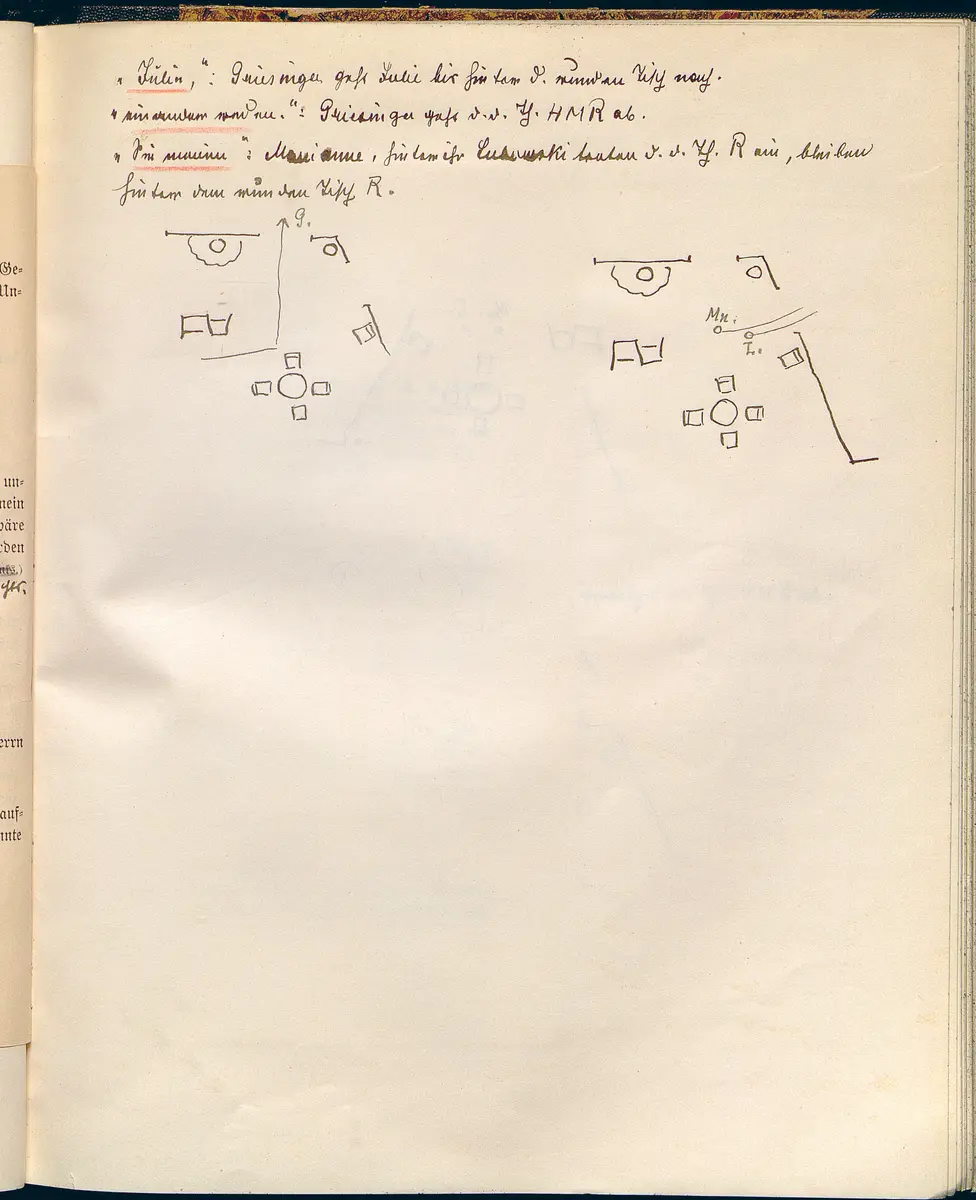 „Julie,": Griesinger geht Julie bis hinter d. runden Tisch nach.
„einander reden.": Griesinger geht d. d. Th. HMR ab.
„Sie meinen": Marianne, hinter ihr Lubowski treten d. d. Th. R ein, bleiben
hinter dem runden Tisch R.
G.
Mn.
L.
Ge-
Un-
un-
mein
wäre
rden
errn
auf-
nnte